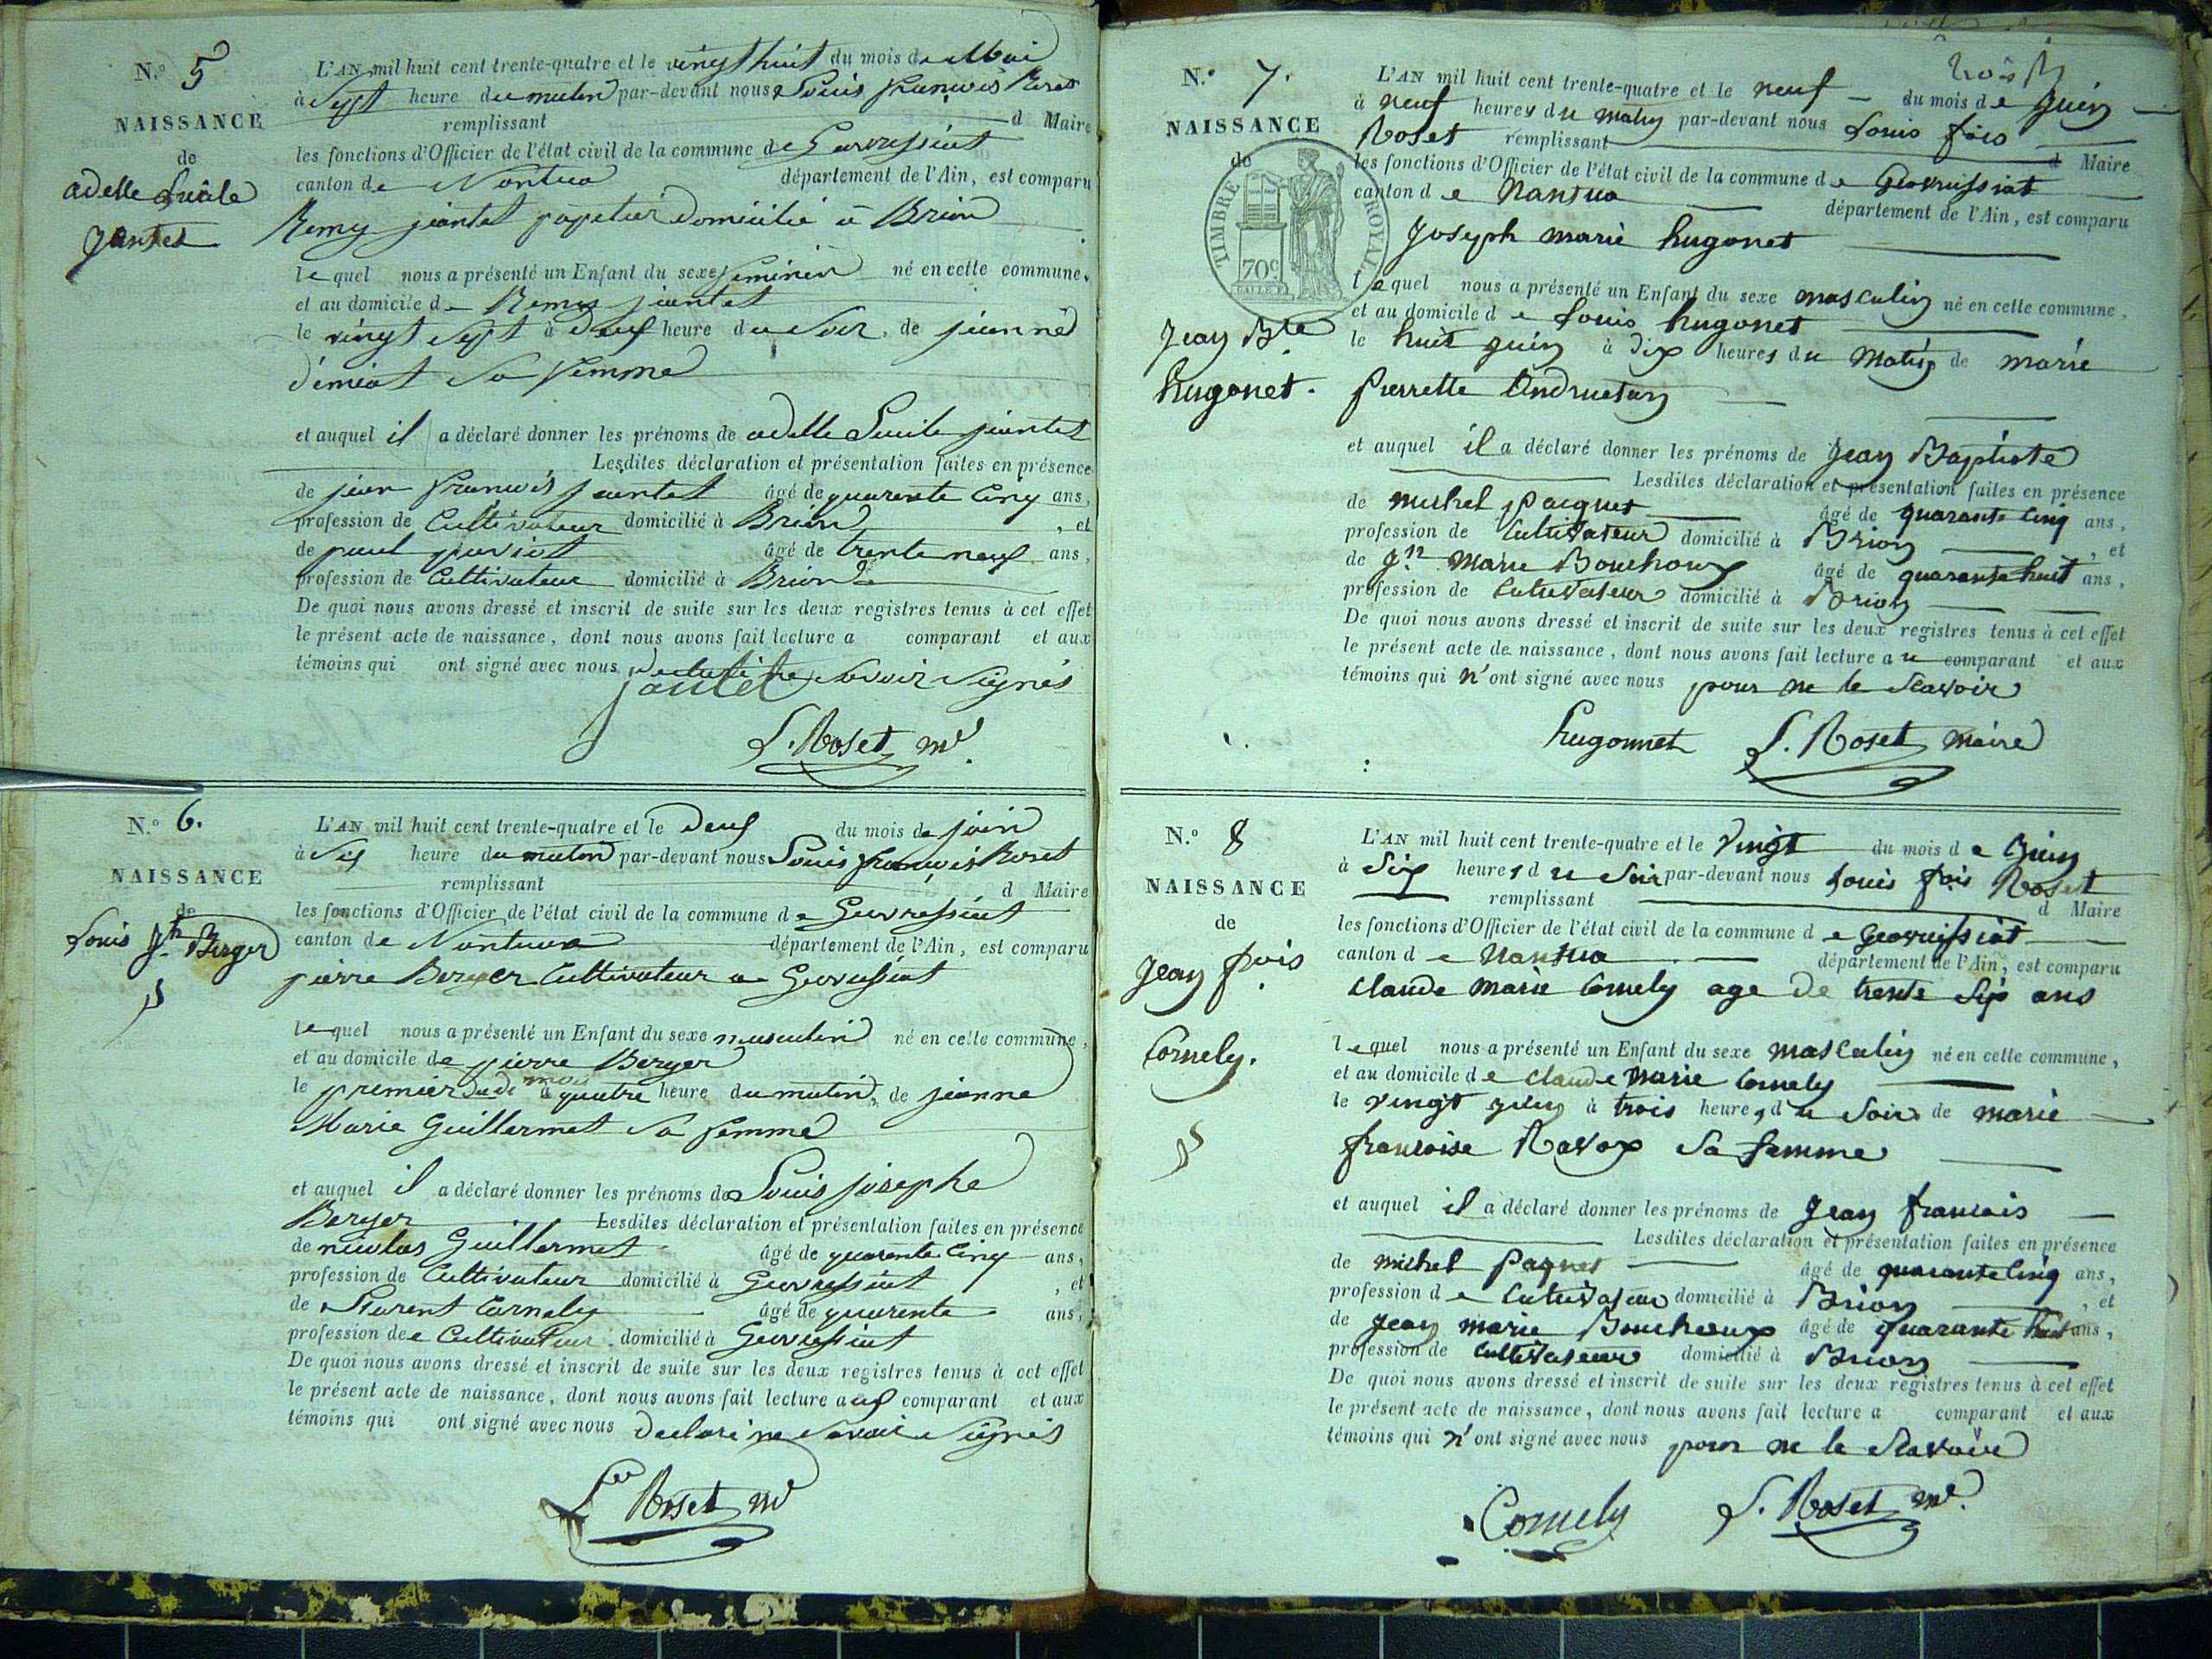 N.° 5
NAISSANCE
de
adelle Lucile
Jantet
L'AN mil huit cent trente-quatre et le vingt huit du mois de Mai
à Sept heure du matin par-devant nous Louis François Roset
remplissant d Maire
les fonctions d'Officier de l'état civil de la commune de Geovressiat
canton de Nantua département de l'Ain, est comparu
Remy jantet papetier domicilié à Brion
lequel nous a présenté un Enfant du sexe feminin né en cette commune,
et au domicile de Remy jantet
le vingt sept à deux heure du Soir, de jeanne
démiat Sa femme
et auquel il a déclaré donner les prénoms de adelle Lucile jantet
Lesdites déclaration et présentation faites en présence
de jean françois jantet âgé de quarente Cinq ans,
profession de Cultivateur domicilié à Brion, et
de paul âgé de trente neuf ans,
profession de Cultivateur domicilié à Brion
De quoi nous avons dressé et inscrit de suite sur les deux registres tenus à cet effet
le présent acte de naissance, dont nous avons fait lecture a comparant et aux
témoins qui ont signé avec nous declaré ne Savoir Signés
jantet
L. Roset m.e
N.° 6.
NAISSANCE
de
Louis J.h Berger
L'AN mil huit cent trente-quatre et le deux du mois de join
à Six heure du matin par-devant nous Louis françois Roset
remplissant d Maire
les fonctions d'Officier de l'état civil de la commune de Geovressiat
canton de Nantua département de l'Ain, est comparu
pierre Berger Cultivateur a Geovressiat
lequel nous a présenté un Enfant du sexe masculin né en cette commune,
et au domicile de pierre Berger
le premier dudi mois à quatre heure du matin, de jeanne
Marie Guillermet Sa femme
et auquel il a déclaré donner les prénoms de Louis josephe
Berger Lesdites déclaration et présentation faites en présence
de nicolas Guillermet âgé de quarente Cinq ans,
profession de Cultivateur domicilié à Geovressiat, et
de Laurent Cornely âgé de quarente ans,
profession de Cultivateur domicilié à Geovressiat
De quoi nous avons dressé et inscrit de suite sur les deux registres tenus à cet effet
le présent acte de naissance, dont nous avons fait lecture aux comparant et aux
témoins qui ont signé avec nous declaré ne Savoir Signés
L Roset m.e
trois
N.° 7.
NAISSANCE
de
TIMBRE ROYAL
70c
Jean B.te
hugonet.
L'AN mil huit cent trente-quatre et le neuf du mois de juin
à neuf heures du matin par-devant nous Louis fçois
Roset remplissant d Maire
les fonctions d'Officier de l'état civil de la commune de Geovreissiat
canton de Nantua département de l'Ain, est comparu
Joseph marie hugonet
lequel nous a présenté un Enfant du sexe masculin né en cette commune,
et au domicile de Louis hugonet
le huit juin à dix heures du matin de marie
pierrette Andruetan
et auquel il a déclaré donner les prénoms de Jean Baptiste
Lesdites déclaration et présentation faites en présence
de michel pacquet âgé de quarante cinq ans,
profession de Cultivateur domicilié à Brion, et
de J.n marie Bouchoux âgé de quarante huit ans,
profession de Cultivateur domicilié à Brion
De quoi nous avons dressé et inscrit de suite sur les deux registres tenus à cet effet
le présent acte de naissance, dont nous avons fait lecture au comparant et aux
témoins qui n'ont signé avec nous pour ne le Scavoir
hugonnet L. Roset maire
N.° 8
NAISSANCE
de
Jean fçois
Cornely.
L'AN mil huit cent trente-quatre et le Vingt du mois de Juin
à Six heures du Soir par-devant nous Louis fçois Roset
remplissant d Maire
les fonctions d'Officier de l'état civil de la commune de Geovreissiat
canton de Nantua département de l'Ain, est comparu
Claude marie Cornely age de trente Six ans
lequel nous a présenté un Enfant du sexe masculin né en cette commune,
et au domicile de Claude marie Cornely
le vingt juin à trois heures du Soir de marie
francoise Ravox Sa femme
et auquel il a déclaré donner les prénoms de Jean francois
Lesdites déclaration et présentation faites en présence
de michel paquet âgé de quarante cinq ans,
profession de Cultivateur domicilié à Brion, et
de Jean marie Boucheoux âgé de quarante huit ans,
profession de Cultivateur domicilié à Brion
De quoi nous avons dressé et inscrit de suite sur les deux registres tenus à cet effet
le présent acte de naissance, dont nous avons fait lecture a comparant et aux
témoins qui n'ont signé avec nous pour ne le Scavoir
Cornely L. Roset m.e